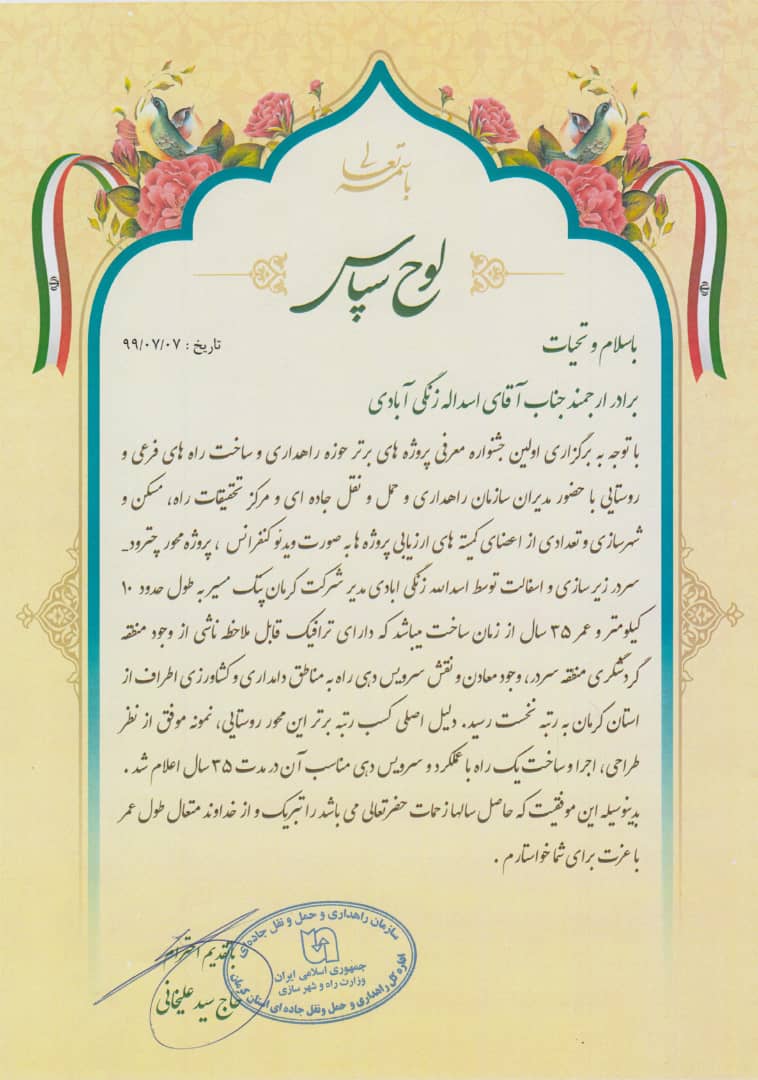 باسمه تعالی
لوح سپاس
باسلام و تحیات
تاریخ : ۹۹/۰۷/۰۷
برادر ارجمند جناب آقای اسداله زنگی آبادی
با توجه به برگزاری اولین جشنواره معرفی پروژه های برتر حوزه راهداری و ساخت راه های فرعی و
روستایی با حضور مدیران سازمان راهداری و حمل و نقل جاده ای و مرکز تحقیقات راه، مسکن و
شهرسازی و تعدادی از اعضای کمیته های ارزیابی پروژه ها به صورت ویدئو کنفرانس ، پروژه محور چترود-
سردر زیر سازی و اسفالت توسط اسدالله زنگی ابادی مدیر شرکت کرمان پتک مسیر به طول حدود ۱۰
کیلومتر و عمر ۳۵ سال از زمان ساخت میباشد که دارای ترافیک قابل ملاحظه ناشی از وجود منقه
گردشگری منقه سردر، وجود معادن و نقش سرویس دهی راه به مناطق دامداری و کشاورزی اطراف از
استان کرمان به رتبه نخست رسید. دلیل اصلی کسب رتبه برتر این محور روستایی، نمونه موفق از نظر
طراحی، اجرا و ساخت یک راه با عملکرد و سرویس دهی مناسب آن در مدت ۳۵ سال اعلام شد .
بدینوسیله این موفقیت که حاصل سالها زحمات حضرتعالی می باشد را تبریک و از خداوند متعال طول عمر
با عزت برای شما خواستارم .
باتقدیم احترام
حاج سید علیخانی
سازمان راهداری و حمل و نقل جاده ای
جمهوری اسلامی ایران
وزارت راه و شهرسازی
اداره کل راهداری و حمل ونقل جاده ای استان کرمان